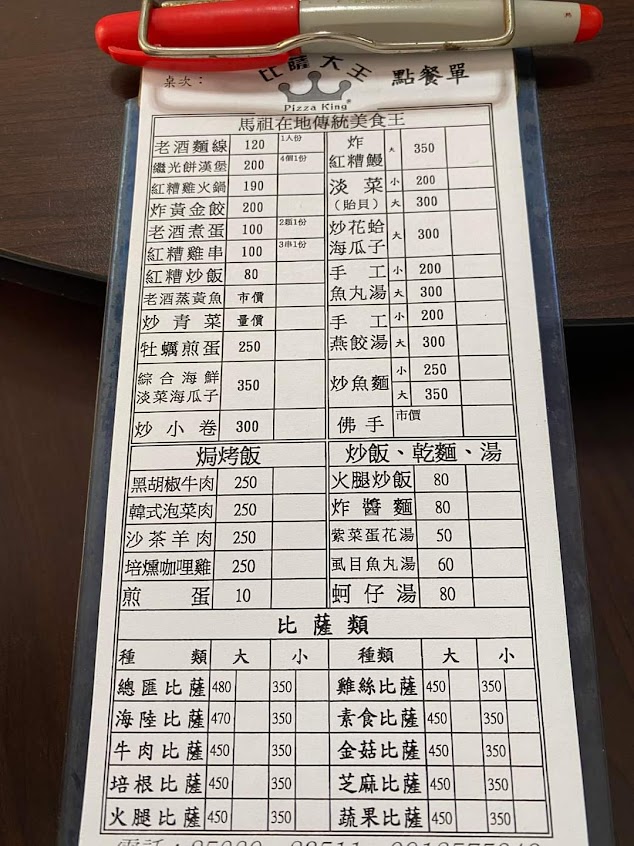 比薩大王
桌次：
點餐單
Pizza King®
馬祖在地傳統美食王
老酒麵線 120 1人份
繼光餅漢堡 200 4個1份
紅糟雞火鍋 190
炸黃金餃 200
老酒煮蛋 100 2顆1份
紅糟雞串 100 3串1份
紅糟炒飯 80
老酒蒸黃魚 市價
炒青菜 量價
牡蠣煎蛋 250
綜合海鮮
淡菜海瓜子 350
炒小卷 300
炸
紅糟鰻 大 350
淡菜 小 200
（貽貝） 大 300
炒花蛤
海瓜子 大 300
手工 小 200
魚丸湯 大 300
手工 小 200
燕餃湯 大 300
炒魚麵 小 250
大 350
佛手 市價
焗烤飯
黑胡椒牛肉 250
韓式泡菜肉 250
沙茶羊肉 250
培燻咖哩雞 250
煎蛋 10
炒飯、乾麵、湯
火腿炒飯 80
炸醬麵 80
紫菜蛋花湯 50
虱目魚丸湯 60
蚵仔湯 80
比薩類
種類 大 小 種類 大 小
總匯比薩 480 350 雞絲比薩 450 350
海陸比薩 470 350 素食比薩 450 350
牛肉比薩 450 350 金菇比薩 450 350
培根比薩 450 350 芝麻比薩 450 350
火腿比薩 450 350 蔬果比薩 450 350